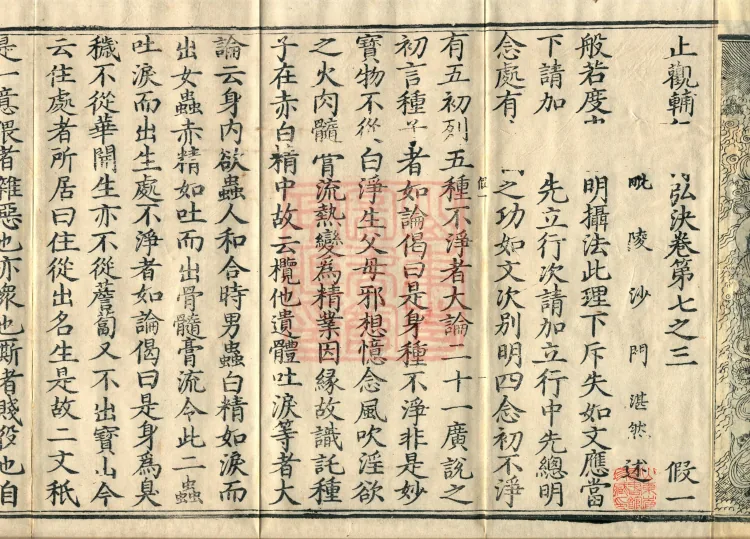 止觀輔 弘決卷第七之三 假一
毗陵沙門湛然述
般若度 明攝法此理下斥失如文應當
下請加 先立行次請加立行中先總明
念處有 之功如文次別明四念初不淨
假一
有五初列五種不淨者大論二十一廣說之
初言種子者如論偈曰是身種不淨非是妙
寶物不從白淨生父母邪想憶念風吹淫欲
之火肉髓膏流熱變為精業因緣故識託種
子在赤白精中故云攬他遺體吐淚等者大
論云身內欲蟲人和合時男蟲白精如淚而
出女蟲赤精如吐而出骨髓膏流令此二蟲
吐淚而出生處不淨者如論偈曰是身為臭
穢不從華開生亦不從薝蔔又不出寶山今
云住處者所居曰住從出名生是故二文秖
是一意猥者雜惡也亦衆也斯者賤役也自